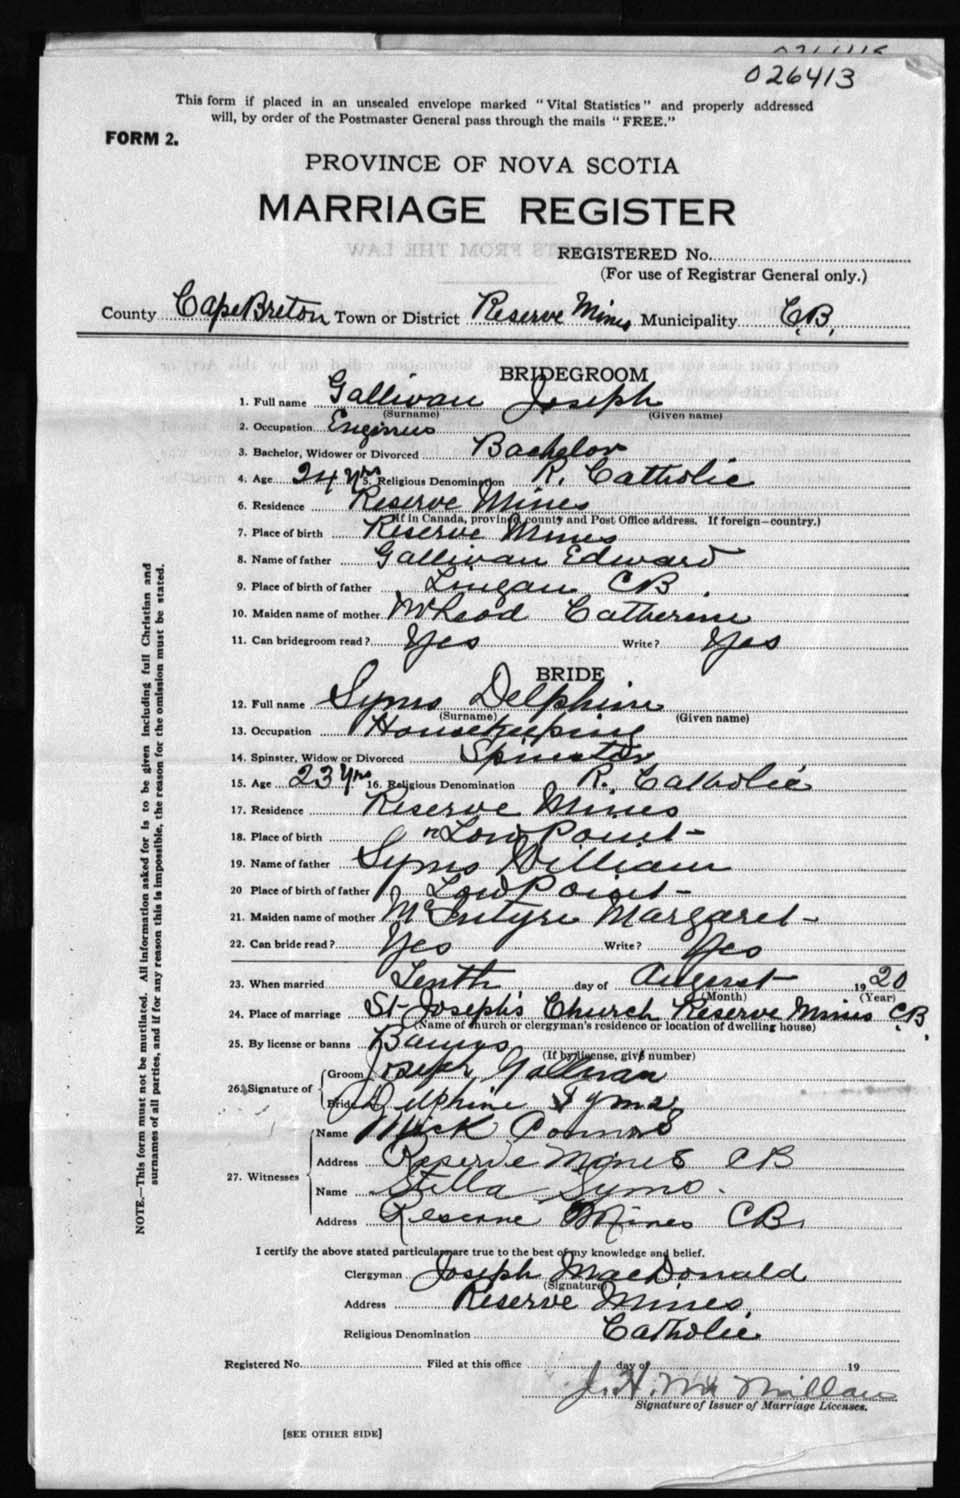 026413
This form if placed in an unsealed envelope marked "Vital Statistics" and properly addressed
will, by order of the Postmaster General pass through the mails "FREE."
FORM 2.
PROVINCE OF NOVA SCOTIA
MARRIAGE REGISTER
REGISTERED No.
(For use of Registrar General only.)
County Cape Breton Town or District Reserve Mines Municipality C.B.
BRIDEGROOM
1. Full name Gallivan Joseph
(Surname) (Given name)
2. Occupation
3. Bachelor, Widower or Divorced Bachelor
4. Age 24 yrs 5. Religious Denomination R. Catholic
6. Residence Reserve Mines
(If in Canada, province, county and Post Office address. If foreign—country.)
7. Place of birth Reserve Mines
8. Name of father Gallivan Edward
9. Place of birth of father Lingan CB.
10. Maiden name of mother McLeod Catherine
11. Can bridegroom read? Yes Write? Yes
BRIDE
12. Full name Syms Delphine
(Surname) (Given name)
13. Occupation Housekeeping
14. Spinster, Widow or Divorced Spinster
15. Age 23 yrs 16. Religious Denomination R. Catholic
17. Residence Reserve Mines
18. Place of birth Low Point
19. Name of father Syms William
20 Place of birth of father Low Point
21. Maiden name of mother McIntyre Margaret
22. Can bride read? Yes Write? Yes
23. When married Tenth day of August 1920
(Month) (Year)
24. Place of marriage St Joseph's Church Reserve Mines C.B.
(Name of church or clergyman's residence or location of dwelling house)
25. By license or banns Banns
(If by license, give number)
26. Signature of Groom Joseph Gallivan
Bride Delphine Syms
27. Witnesses Name Mick Connors
Address Reserve Mines CB
Name Stella Syms.
Address Reserve Mines CB
I certify the above stated particulars are true to the best of my knowledge and belief.
Clergyman Joseph MacDonald
(Signature)
Address Reserve Mines
Religious Denomination Catholic
Registered No. Filed at this office day of 19
J. H. McMillan
Signature of Issuer of Marriage Licenses.
[SEE OTHER SIDE]
NOTE.—This form must not be mutilated. All information asked for is to be given including full Christian and
surnames of all parties, and if for any reason this is impossible, the reason for the omission must be stated.